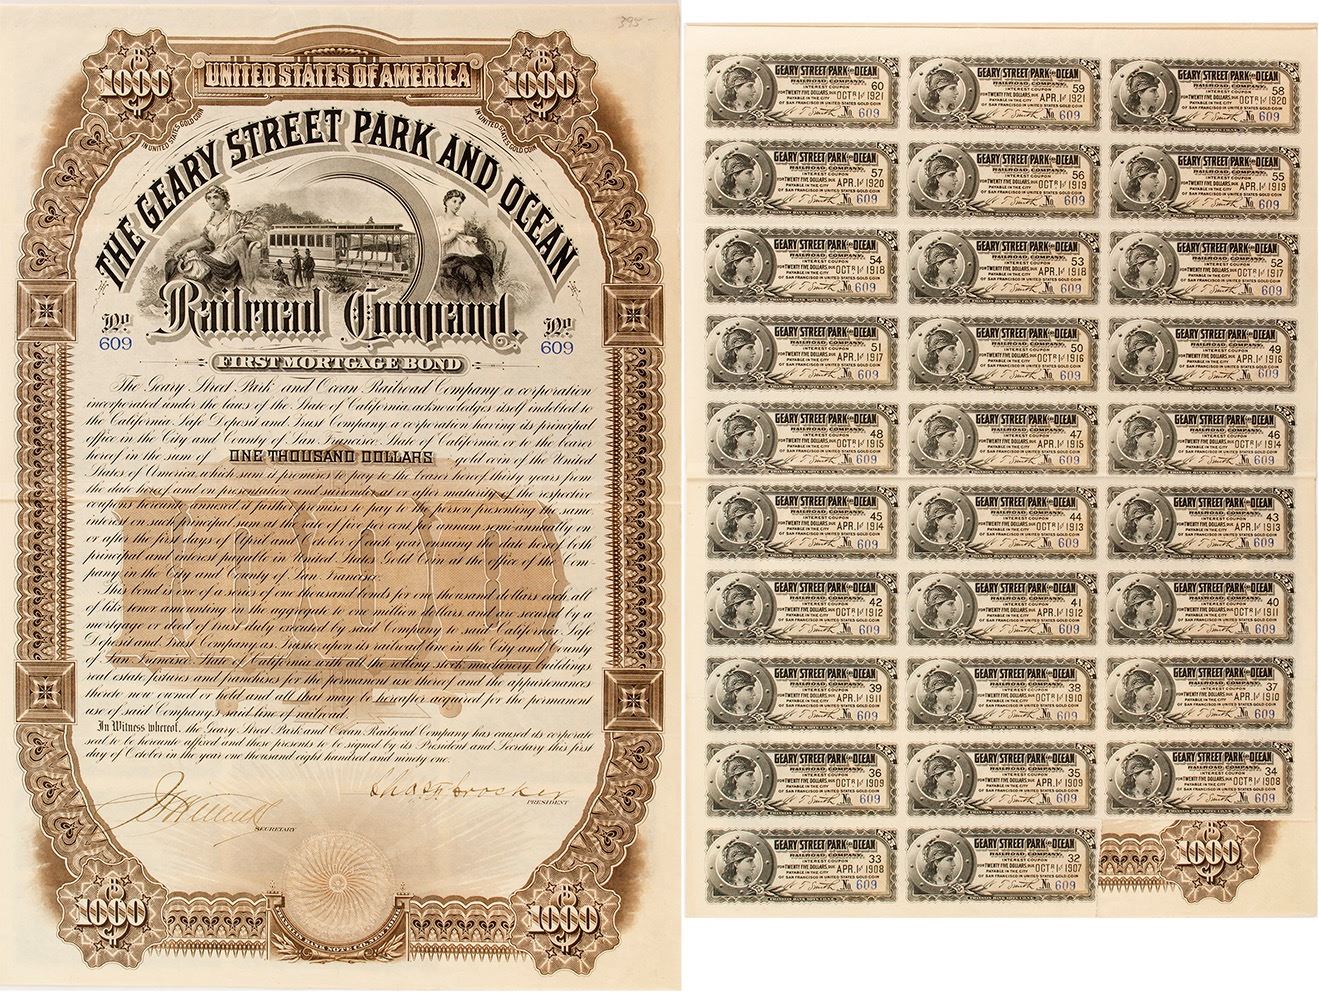 395-
$1000
UNITED STATES OF AMERICA
$1000
IN UNITED STATES GOLD COIN
IN UNITED STATES GOLD COIN
THE GEARY STREET PARK AND OCEAN
Railroad Company.
No 609
No 609
FIRST MORTGAGE BOND
The Geary Street Park and Ocean Railroad Company a corporation
incorporated under the laws of the State of California, acknowledges itself indebted to
the California Safe Deposit and Trust Company a corporation having its principal
office in the City and County of San Francisco, State of California, or to the bearer
hereof in the sum of ONE THOUSAND DOLLARS gold coin of the United
States of America, which sum it promises to pay to the bearer hereof thirty years from
the date hereof and on presentation and surrender at or after maturity of the respective
coupons hereunto annexed it further promises to pay to the person presenting the same
interest on such principal sum at the rate of five per cent per annum semi-annually on
or after the first days of April and October of each year ensuing the date hereof both
principal and interest payable in United States Gold Coin at the office of the Com-
pany in the City and County of San Francisco.
This bond is one of a series of one thousand bonds for one thousand dollars each, all
of like tenor amounting in the aggregate to one million dollars and are secured by a
mortgage or deed of trust duly executed by said Company to said California Safe
Deposit and Trust Company as Trustee upon its railroad line in the City and County
of San Francisco, State of California with all the rolling stock machinery buildings
real estate, fixtures and franchises for the permanent use thereof and the appurtenances
thereto now owned or held and all that may be hereafter acquired for the permanent
use of said Company's said line of railroad.
In Witness whereof, the Geary Street Park and Ocean Railroad Company has caused its corporate
seal to be hereunto affixed and these presents to be signed by its President and Secretary this first
day of October in the year one thousand eight hundred and ninety one.
SECRETARY
Chas F Crocker
PRESIDENT
$1000
FRANKLIN BANK NOTE CO. NEW YORK
$1000
GEARY STREET PARK AND OCEAN
RAILROAD COMPANY,
INTEREST COUPON 60
FOR TWENTY FIVE DOLLARS DUE OCTR 1st 1921
PAYABLE IN THE CITY
OF SAN FRANCISCO IN UNITED STATES GOLD COIN
No. 609
GEARY STREET PARK AND OCEAN
RAILROAD COMPANY,
INTEREST COUPON 59
FOR TWENTY FIVE DOLLARS DUE APR. 1st 1921
PAYABLE IN THE CITY
OF SAN FRANCISCO IN UNITED STATES GOLD COIN
No. 609
GEARY STREET PARK AND OCEAN
RAILROAD COMPANY,
INTEREST COUPON 58
FOR TWENTY FIVE DOLLARS DUE OCTR 1st 1920
PAYABLE IN THE CITY
OF SAN FRANCISCO IN UNITED STATES GOLD COIN
No. 609
57 APR. 1st 1920
No. 609
56 OCTR 1st 1919
No. 609
55 APR. 1st 1919
No. 609
54 OCTR 1st 1918
No. 609
53 APR. 1st 1918
No. 609
52 OCTR 1st 1917
No. 609
51 APR. 1st 1917
No. 609
50 OCTR 1st 1916
No. 609
49 APR. 1st 1916
No. 609
48 OCTR 1st 1915
No. 609
47 APR. 1st 1915
No. 609
46 OCTR 1st 1914
No. 609
45 APR. 1st 1914
No. 609
44 OCTR 1st 1913
No. 609
43 APR. 1st 1913
No. 609
42 OCTR 1st 1912
No. 609
41 APR. 1st 1912
No. 609
40 OCTR 1st 1911
No. 609
39 APR. 1st 1911
No. 609
38 OCTR 1st 1910
No. 609
37 APR. 1st 1910
No. 609
36 OCTR 1st 1909
No. 609
35 APR. 1st 1909
No. 609
34 OCTR 1st 1908
No. 609
33 APR. 1st 1908
No. 609
32 OCTR 1st 1907
No. 609
$1000